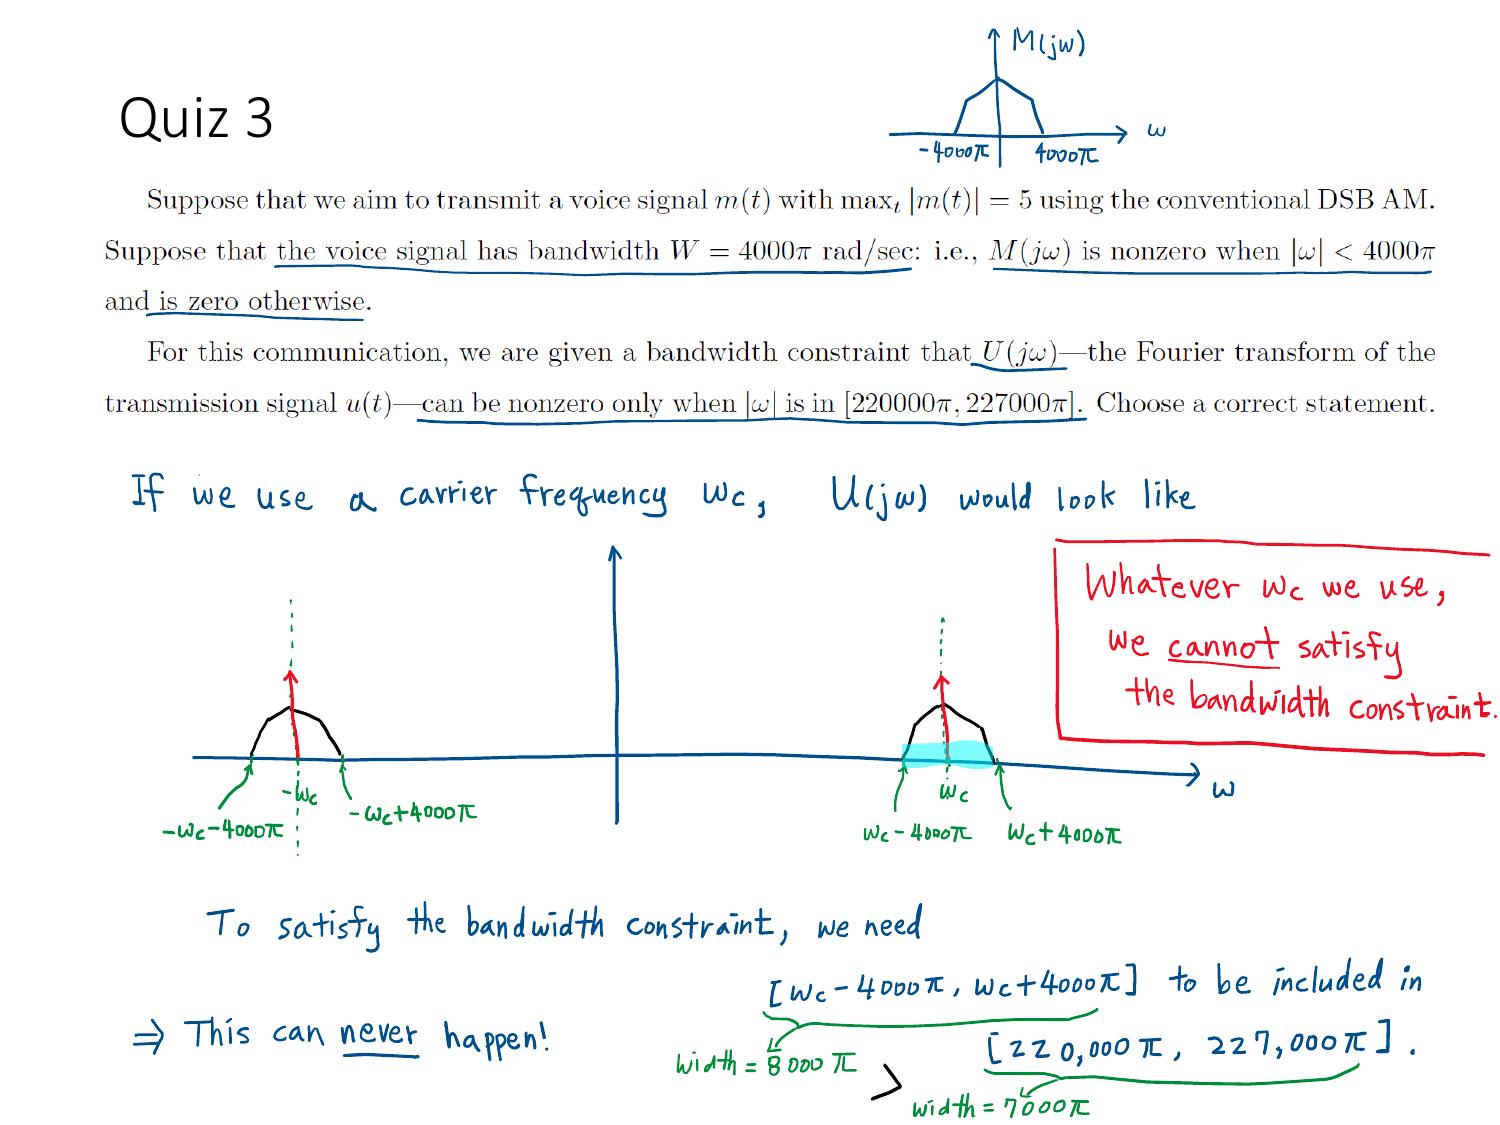 M(jω)
ω
-4000π 4000π
Quiz 3
Suppose that we aim to transmit a voice signal m(t) with maxₜ |m(t)| = 5 using the conventional DSB AM.
Suppose that the voice signal has bandwidth W = 4000π rad/sec: i.e., M(jω) is nonzero when |ω| < 4000π
and is zero otherwise.
For this communication, we are given a bandwidth constraint that U(jω)—the Fourier transform of the
transmission signal u(t)—can be nonzero only when |ω| is in [220000π, 227000π]. Choose a correct statement.
If we use a carrier frequency ωc, U(jω) would look like
Whatever ωc we use,
we cannot satisfy
the bandwidth constraint.
-ωc
ωc
ω
-ωc-4000π
-ωc+4000π
ωc-4000π
ωc+4000π
To satisfy the bandwidth constraint, we need
[ωc-4000π, ωc+4000π] to be included in
⇒ This can never happen!
[220,000π, 227,000π].
width = 8000π
>
width = 7000π